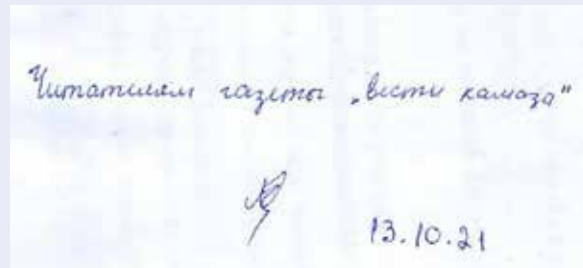 Читателям газеты „Вести камаза"
13.10.21